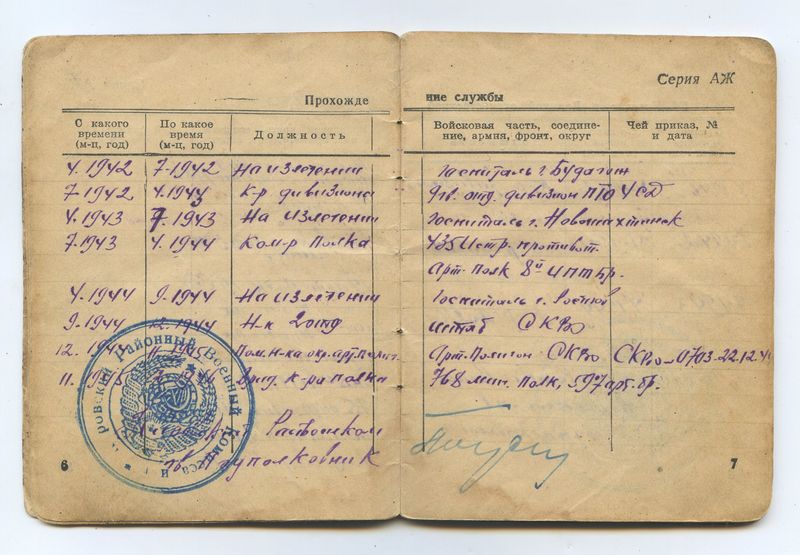 Серия АЖ
Прохождение службы
С какого времени (м-ц, год) По какое время (м-ц, год) Должность Войсковая часть, соединение, армия, фронт, округ Чей приказ, № и дата
4.1942 7.1942 На излечении Госпиталь г. Будагощ
7.1942 4.1943 К-р дивизиона отд. дивизион ПТО 4 СД
4.1943 7.1943 На излечении Госпиталь г. Новошахтинск
7.1943 4.1944 Ком-р полка 435 Истр. противот.
Арт. Полк 8й ИПТбр.
4.1944 9.1944 На излечении Госпиталь г. Ростов
9.1944 12.1944 Н-к 2 отд штаб СКВО
12. Пом. н-ка окр. арт. Арт. Полигон СКВО СКВО-0703-22.12.44
11. Врид. к-ра полка 768 мин. полк, 597 арт. бр.
Райвоенком
подполковник
Районный Военный
6
7